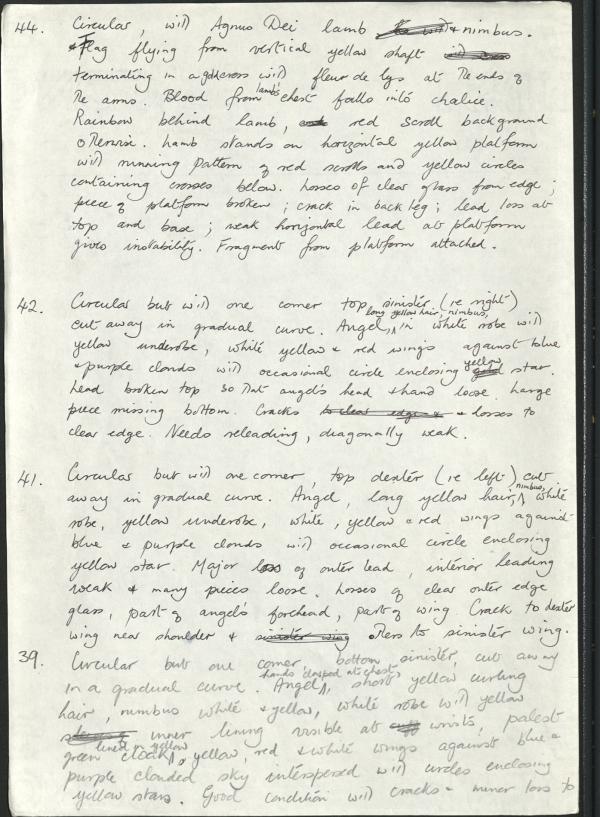 44. Circular, with Agnus Dei lamb & nimbus.
& Flag flying from vertical yellow shaft
terminating in a gold cross with fleur de lys at the ends of
the arms. Blood from lamb's chest falls into chalice.
Rainbow behind lamb, red scroll background
otherwise. Lamb stands on horizontal yellow platform
with running pattern of red scrolls and yellow circles
containing crosses below. Losses of clear glass from edge;
piece of platform broken; crack in back leg; lead loss at
top and base; weak horizontal lead at platform
gives instability. Fragment from platform attached.
42. Circular but with one corner top sinister (ie right)
cut away in gradual curve. Angel, long yellow hair, nimbus, in white robe with
yellow underobe, white yellow & red wings against blue
& purple clouds with occasional circle enclosing yellow star.
Lead broken top so that angel's head & hand loose. Large
piece missing bottom. Cracks & losses to
clear edge. Needs releading, diagonally weak.
41. Circular but with one corner, top dexter (ie left) cut
away in gradual curve. Angel, long yellow hair, nimbus, white
robe, yellow underobe, white, yellow & red wings against
blue & purple clouds with occasional circle enclosing
yellow star. Major loss of outer lead, interior leading
weak & many pieces loose. Losses of clear outer edge
glass, part of angel's forehead, part of wing. Crack to dexter
wing near shoulder & others to sinister wing.
39. Circular but one corner, bottom sinister, cut away
in a gradual curve. Angel, hands clasped at chest, short yellow curling
hair, nimbus white & yellow, white robe with yellow
inner lining visible at wrists, palest
green cloak lined in yellow, yellow, red & white wings against blue &
purple clouded sky interspersed with circles enclosing
yellow stars. Good condition with cracks & minor loss to